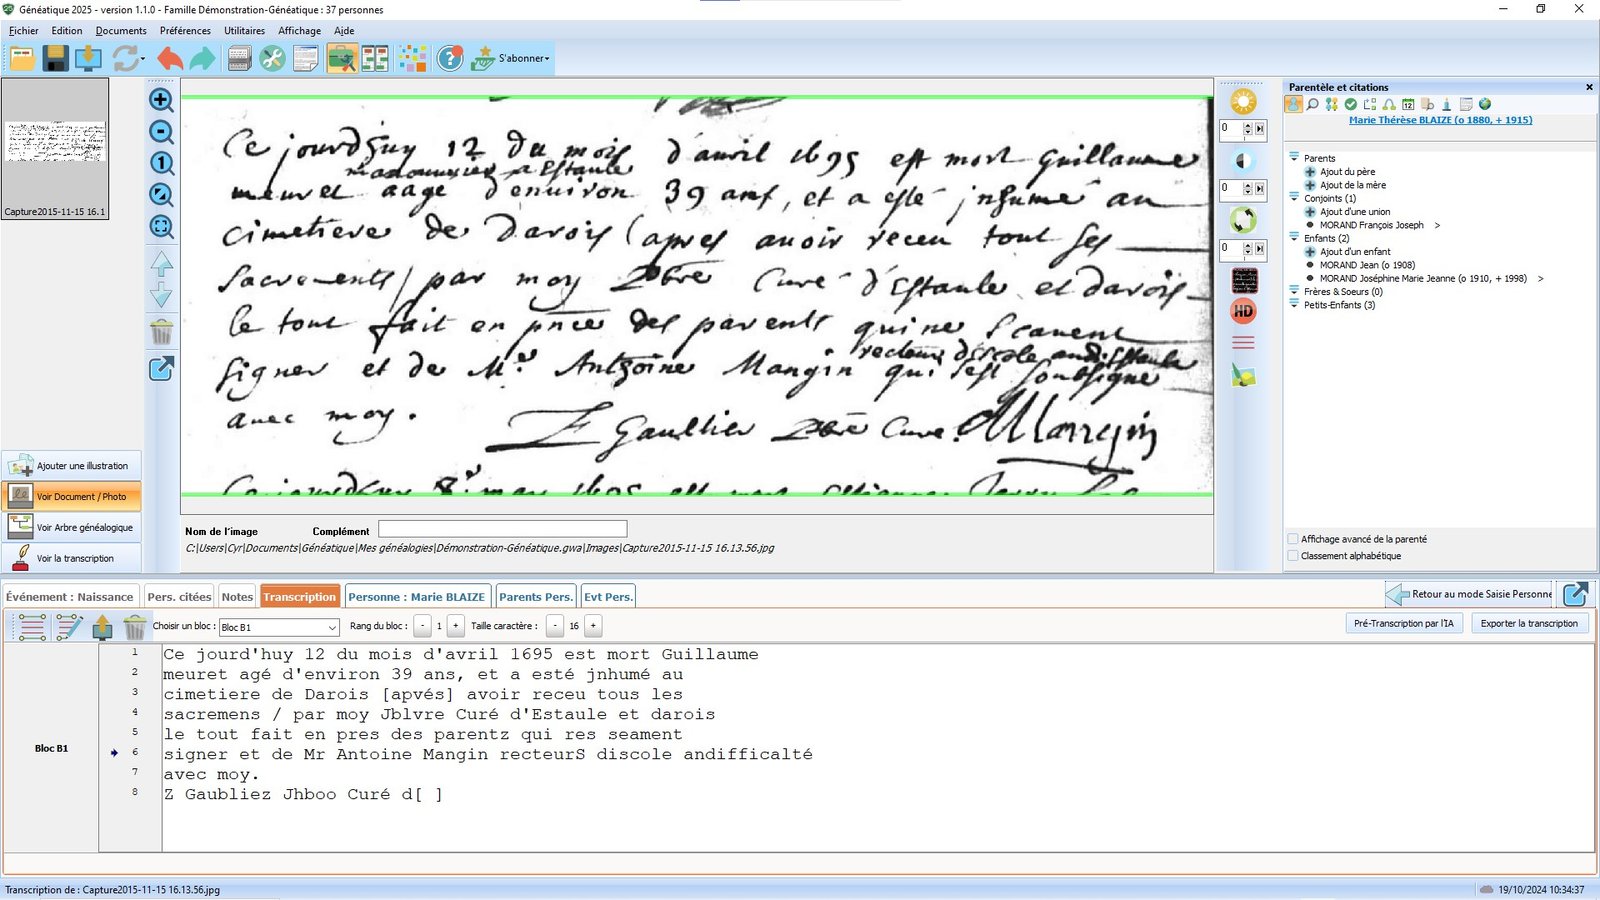 Généatique 2025 - version 1.1.0 - Famille Démonstration-Généatique : 37 personnes
Fichier Edition Documents Préférences Utilitaires Affichage Aide
S'abonner
Capture2015-11-15 16.1
Ce jourd'huy 12 du mois d'avril 1695 est mort Guillaume
a Estaule
meuret aagé d'environ 39 ans, et a esté jnhumé au
cimetiere de Darois (apres avoir receu tout ses
sacrements / par moy Curé d'Estaule et darois
le tout fait en des parents qui ne scavent
recteur d'escole
signer et de Mr. Anthoine Mangin qui s'est soubsigné
avec moy.
Gaultier Curé. Mangin
Ajouter une illustration
Voir Document / Photo
Voir Arbre généalogique
Voir la transcription
Nom de l'image Complément
C:\Users\Cyr\Documents\Généatique\Mes généalogies\Démonstration-Généatique.gwa\Images\Capture2015-11-15 16.13.56.jpg
0
0
0
HD
Parentèle et citations
Marie Thérèse BLAIZE (o 1880, + 1915)
Parents
Ajout du père
Ajout de la mère
Conjoints (1)
Ajout d'une union
MORAND François Joseph >
Enfants (2)
Ajout d'un enfant
MORAND Jean (o 1908)
MORAND Joséphine Marie Jeanne (o 1910, + 1998) >
Frères & Soeurs (0)
Petits-Enfants (3)
Affichage avancé de la parenté
Classement alphabétique
Événement : Naissance Pers. citées Notes Transcription Personne : Marie BLAIZE Parents Pers. Evt Pers.
Retour au mode Saisie Personne
Choisir un bloc : Bloc B1 Rang du bloc : - 1 + Taille caractère : - 16 +
Pré-Transcription par l'IA Exporter la transcription
Bloc B1
1 Ce jourd'huy 12 du mois d'avril 1695 est mort Guillaume
2 meuret agé d'environ 39 ans, et a esté jnhumé au
3 cimetiere de Darois [apvés] avoir receu tous les
4 sacremens / par moy Jblvre Curé d'Estaule et darois
5 le tout fait en pres des parentz qui res seament
6 signer et de Mr Antoine Mangin recteurS discole andifficalté
7 avec moy.
8 Z Gaubliez Jhboo Curé d[ ]
Transcription de : Capture2015-11-15 16.13.56.jpg
19/10/2024 10:34:37